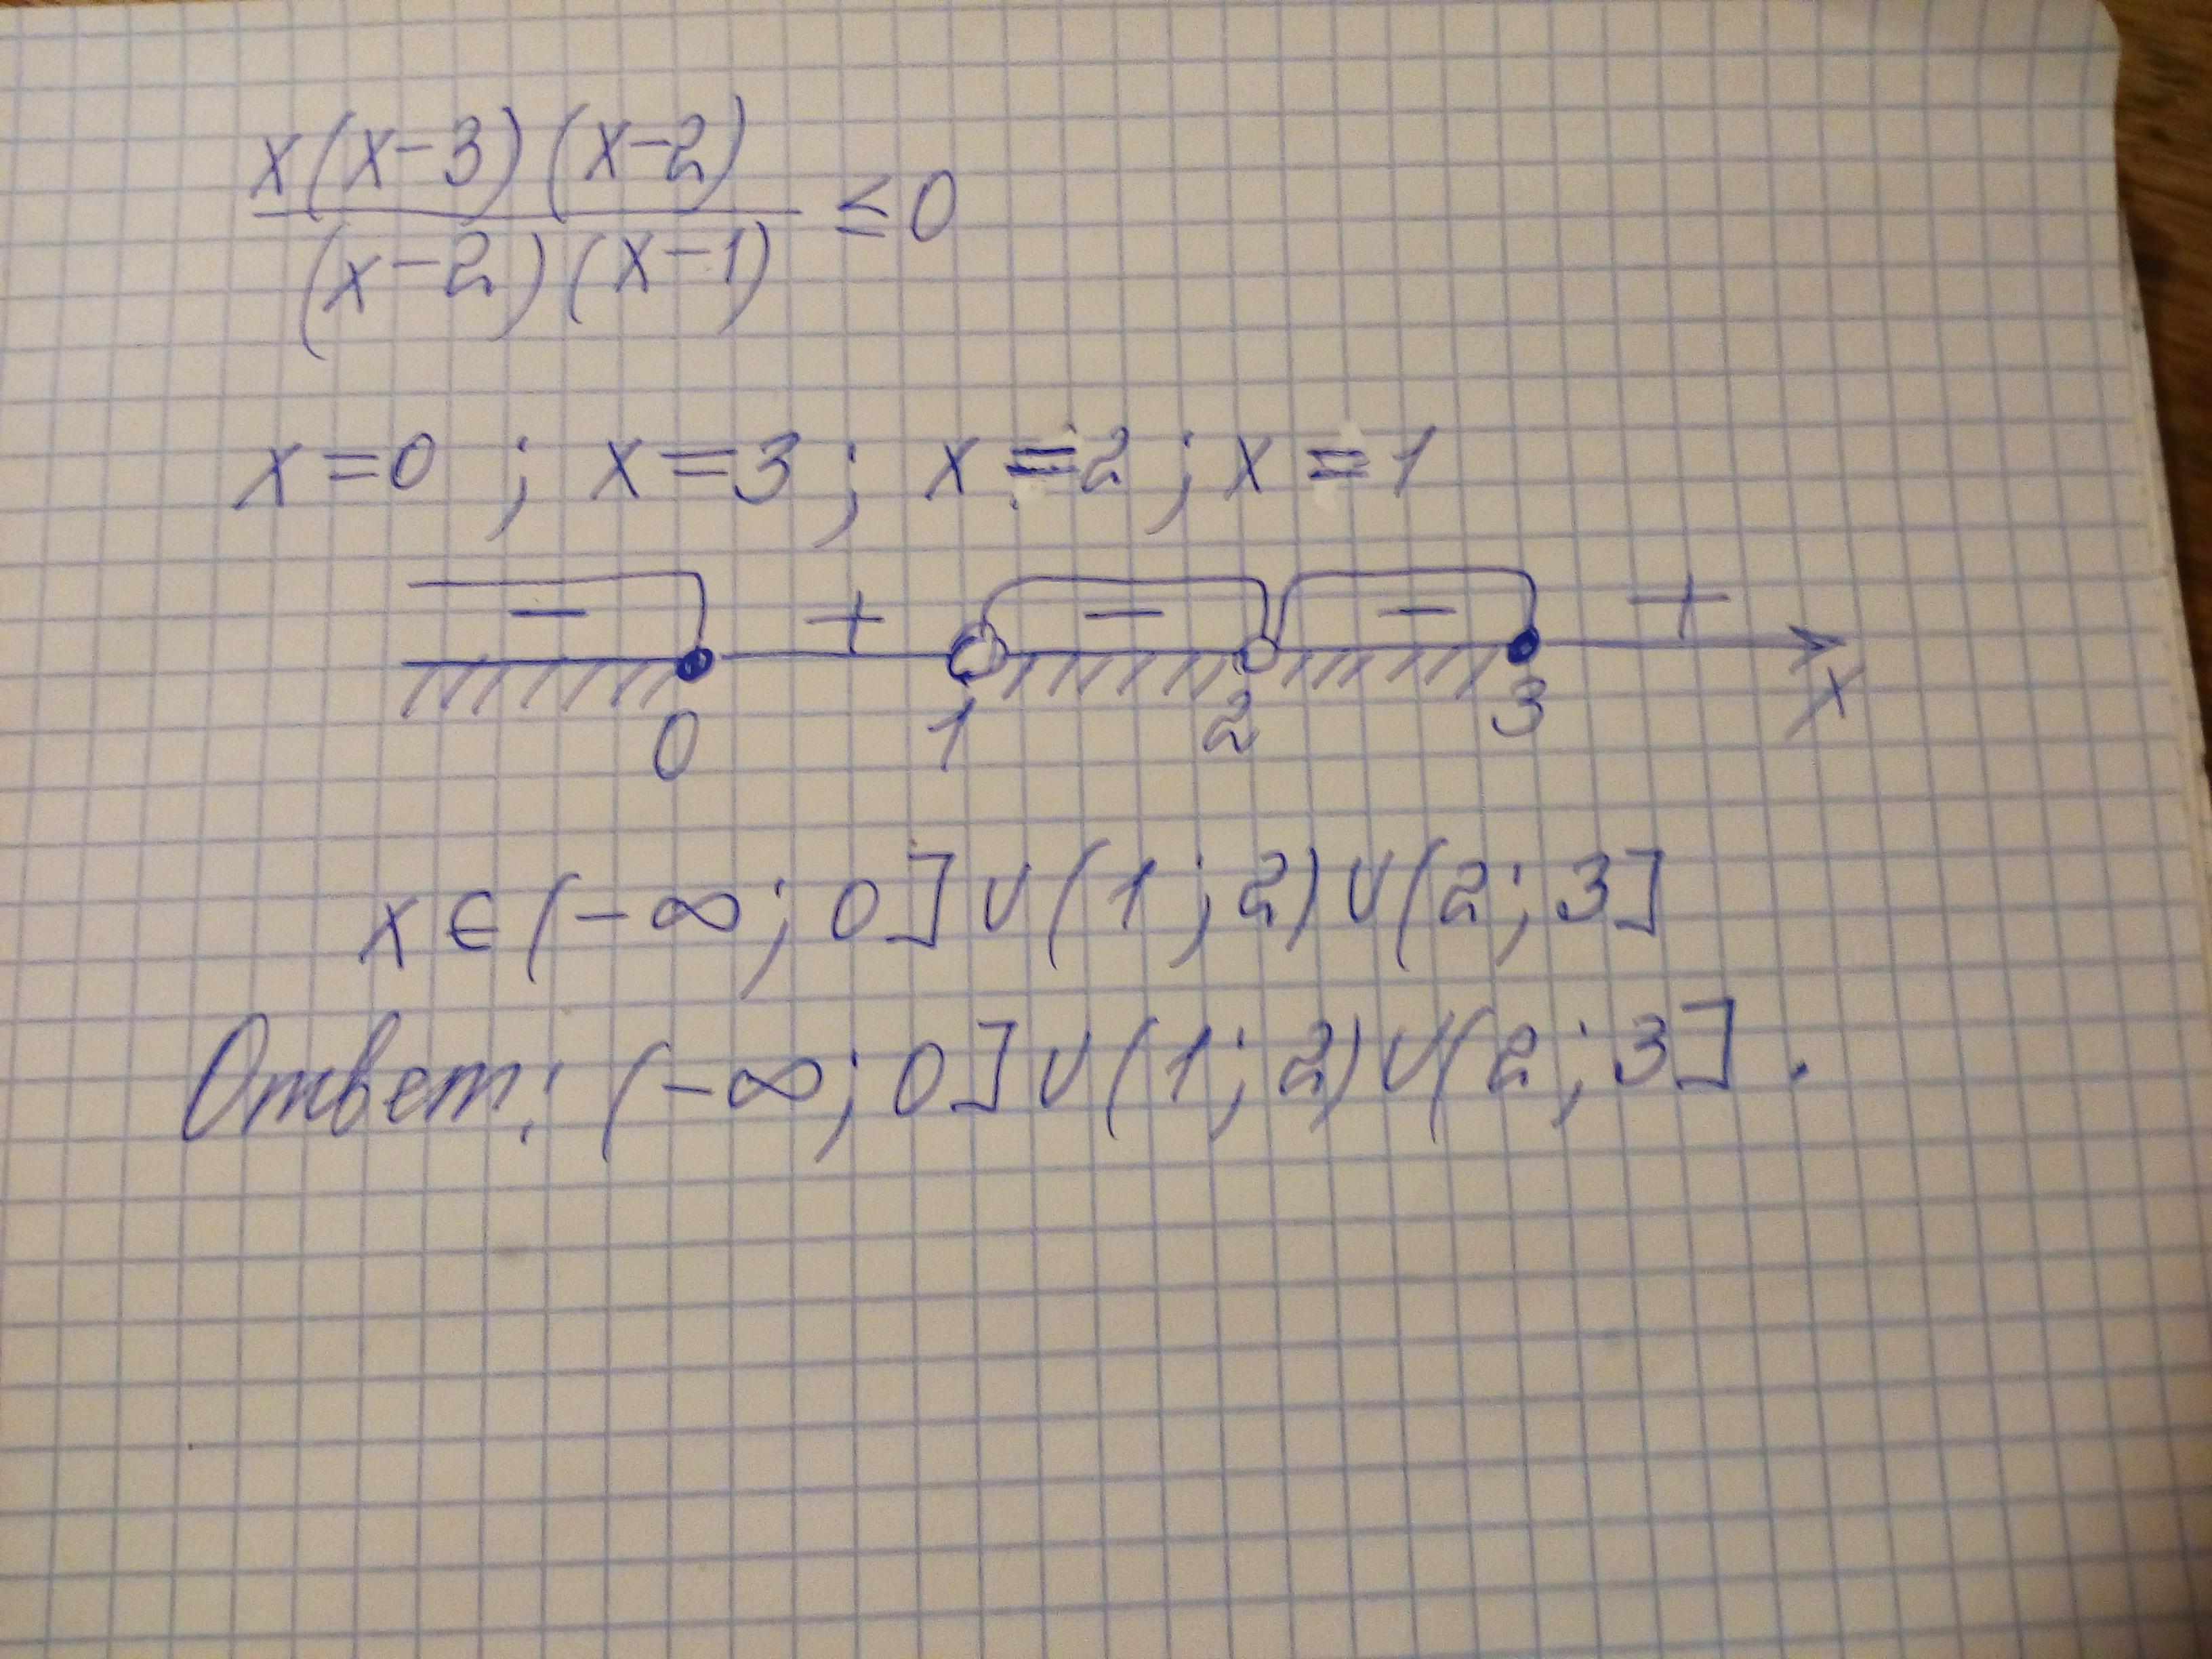 x(x-3)(x-2)
(x-2)(x-1)
≤0
x=0 ; x=3 ; x=2 ; x=1
− + − − +
0 1 2 3 x
x∈(-∞; 0]∪(1; 2)∪(2; 3]
Ответ: (-∞; 0]∪(1; 2)∪(2; 3].